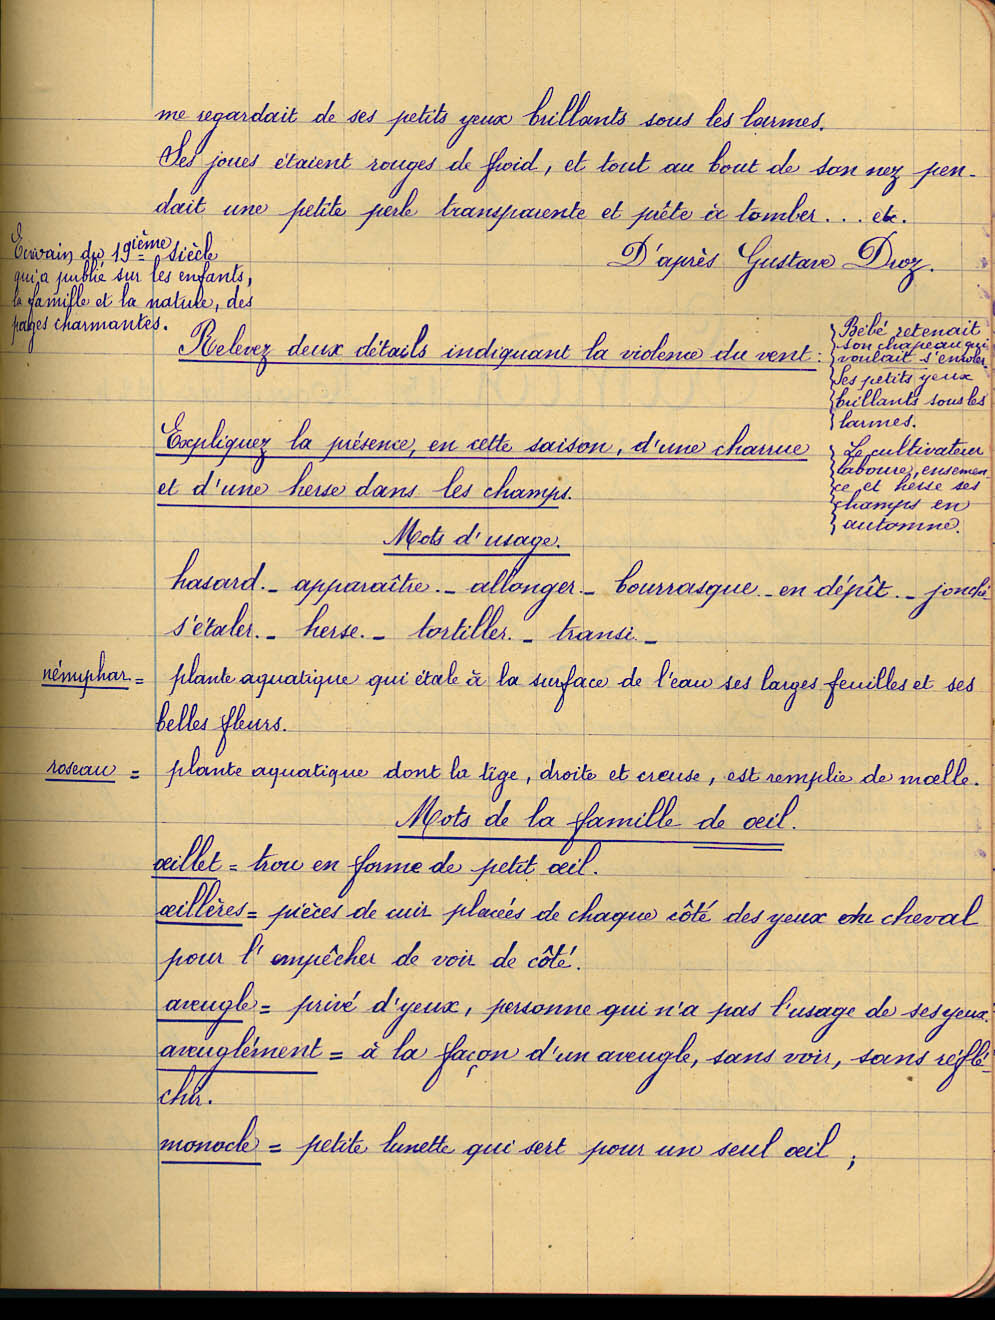 me regardait de ses petits yeux brillants sous les larmes.
Ses joues étaient rouges de froid, et tout au bout de son nez pen-
dait une petite perle transparente et prête à tomber... etc.
D'après Gustave Droz.
Ecrivain du 19ième siècle
qui a publié sur les enfants,
la famille et la nature, des
pages charmantes.
Relevez deux détails indiquant la violence du vent :
Bébé retenait
son chapeau qui
voulait s'envoler.
Ses petits yeux
brillants sous les
larmes.
Expliquez la présence, en cette saison, d'une charrue
et d'une herse dans les champs.
Le cultivateur
laboure, ensemen-
ce et herse ses
champs en
automne.
Mots d'usage.
hasard._ apparaître._ allonger._ bourrasque._ en dépôt._ jonché
s'étaler._ herse._ tortiller._ transi._
nénuphar = plante aquatique qui étale à la surface de l'eau ses larges feuilles et ses
belles fleurs.
roseau = plante aquatique dont la tige, droite et creuse, est remplie de mœlle.
Mots de la famille de œil.
œillet = trou en forme de petit œil.
œillères = pièces de cuir placées de chaque côté des yeux du cheval
pour l'empêcher de voir de côté.
aveugle = privé d'yeux, personne qui n'a pas l'usage de ses yeux.
aveuglément = à la façon d'un aveugle, sans voir, sans réflé-
chir.
monocle = petite lunette qui sert pour un seul œil ;